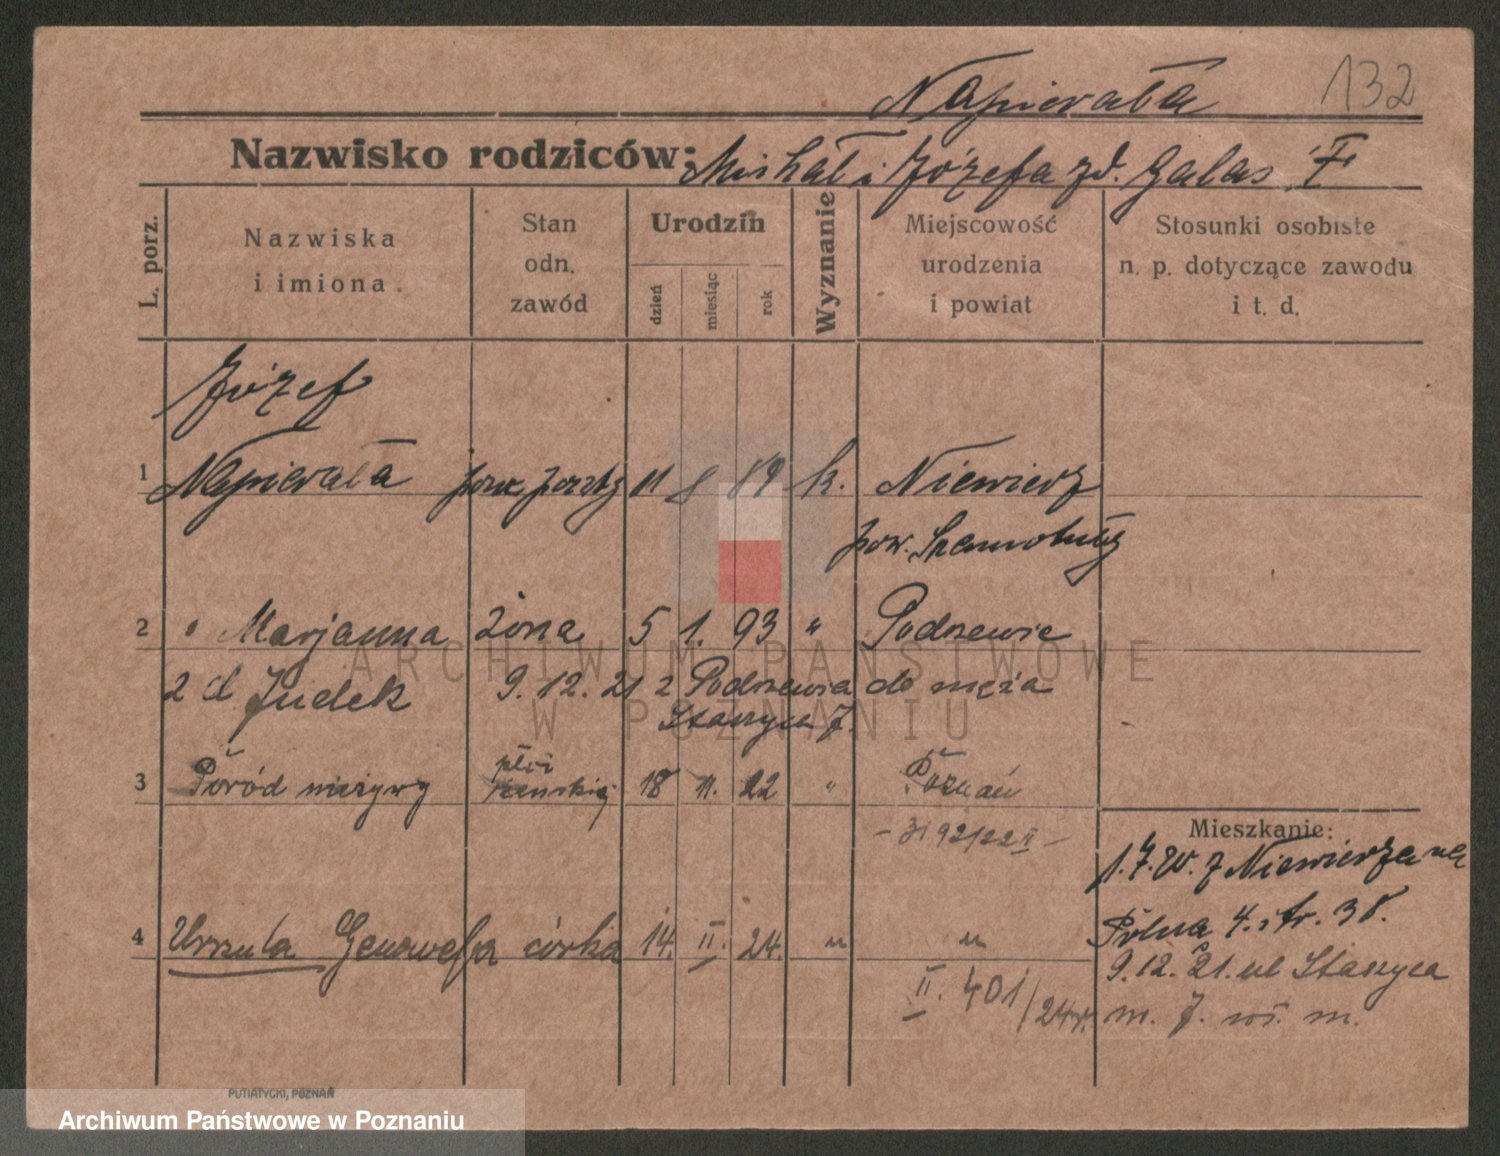 132
Napierała
Nazwisko rodziców: Michał i Józefa zd. Galas
L. porz.
Nazwiska
i imiona.
Stan
odn.
zawód
Urodzin
dzień
miesiąc
rok
Wyznanie
Miejscowość
urodzenia
i powiat
Stosunki osobiste
n. p. dotyczące zawodu
i t. d.
Józef
1 Napierała 11 8 89 k. Niewierz
pow. Szamotuły
2 " Marjanna żona 5 1. 93 " Podrzewie
2 d Judek 9. 12. 21 z Podrzewia do męża
Staszyca 7.
płci
3 Poród nieżywy żeńskiej 18 11. 22 " Poznań
92/22 II
Mieszkanie:
z Niewierza na
4 Urszula Genowefa córka 14. II. 24. " "
Polna 4. i tr. 38.
9. 12. 21. ul Staszyca
II. 401/24 m. 7. m.
PUTIATYCKI, POZNAŃ
ARCHIWUM PAŃSTWOWE
W POZNANIU
Archiwum Państwowe w Poznaniu